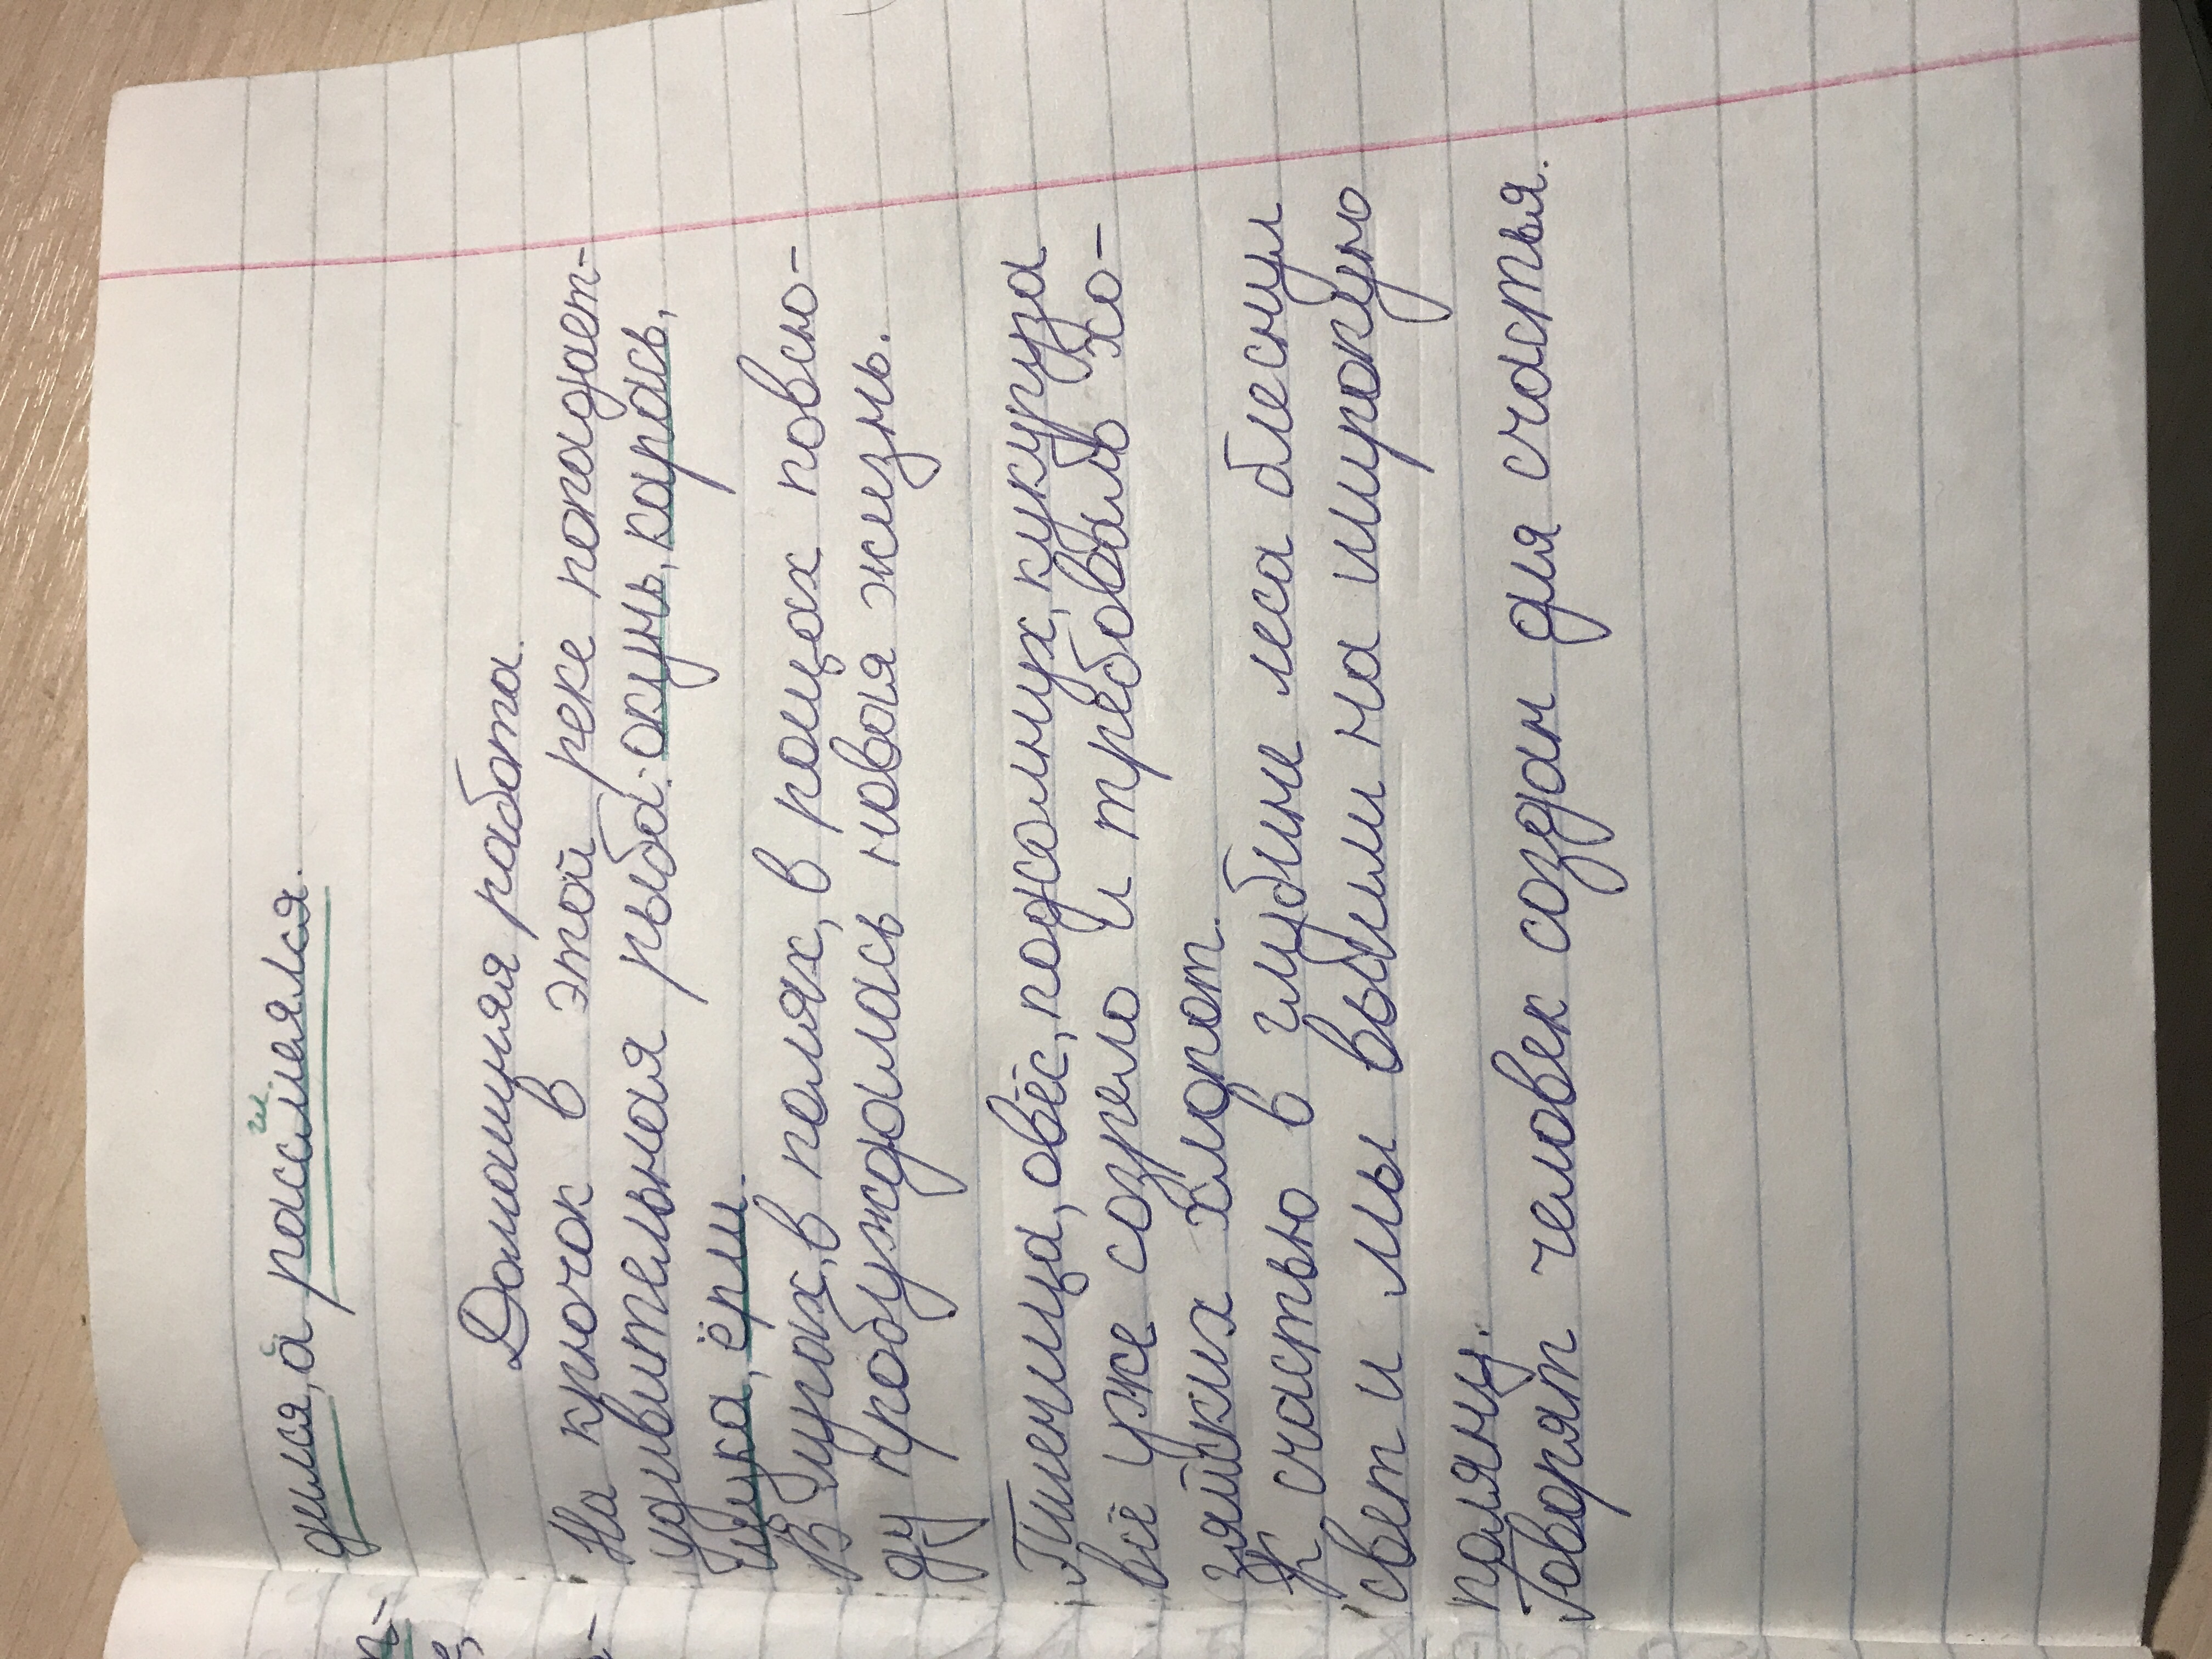 дился, а рассмеялся.
гл.
Домашняя работа.
На крючок в этой реке попадает-
удивительная рыба: окунь, карась,
щука, ёрш.
В лугах, в полях, в рощах повсю-
ду пробуждалась новая жизнь.
Пшеница, овёс, подсолнух, кукуруза
всё уже созрело и требовало хо-
зяйских хлопот.
К счастью в глубине леса блеснул
свет и мы вышли на широкую
поляну.
Говорят человек создан для счастья.